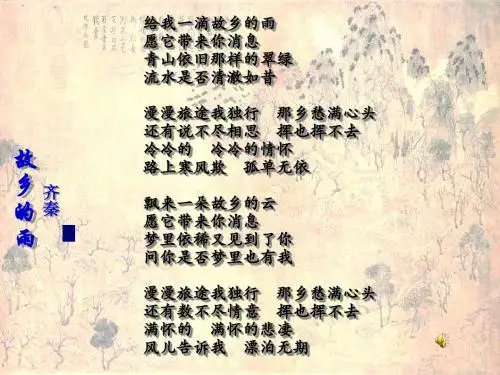 故乡的雨
齐秦
给我一滴故乡的雨
愿它带来你消息
青山依旧那样的翠绿
流水是否清澈如昔
漫漫旅途我独行 那乡愁满心头
还有说不尽相思 挥也挥不去
冷冷的 冷冷的情怀
路上寒风欺 孤单无依
飘来一朵故乡的云
愿它带来你消息
梦里依稀又见到了你
问你是否梦里也有我
漫漫旅途我独行 那乡愁满心头
还有数不尽情意 挥也挥不去
满怀的 满怀的悲凄
风儿告诉我 漂泊无期